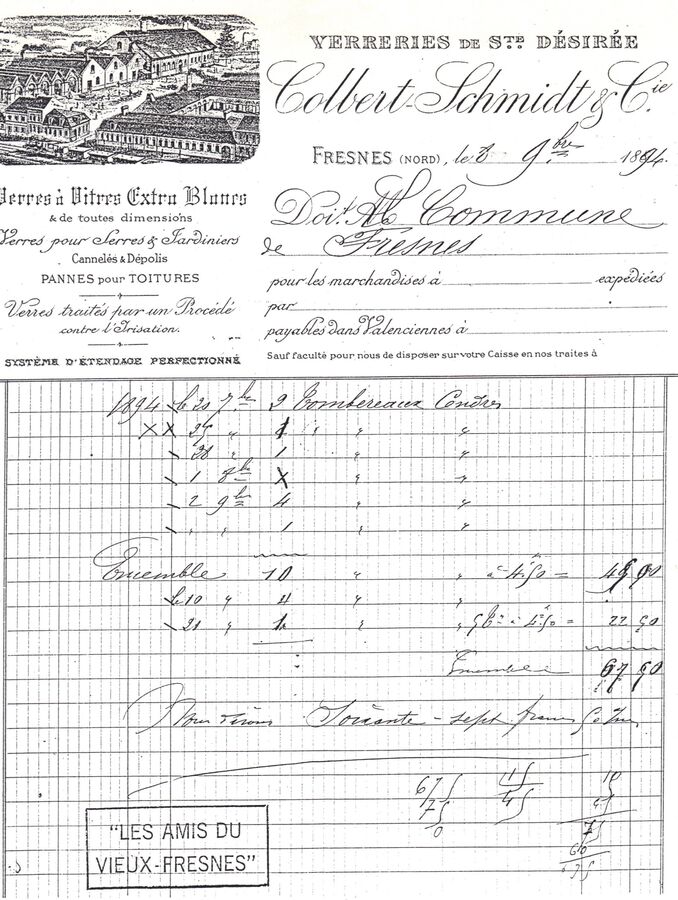 VERRERIES DE STE DÉSIRÉE
Colbert-Schmidt & Cie.
FRESNES (NORD), le 8 9bre 1894.
Verres à Vitres Extra Blancs
& de toutes dimensions
Verres pour Serres & Jardiniers
Cannelés & Dépolis
PANNES pour TOITURES
Verres traités par un Procédé
contre l'Irisation.
SYSTÈME D'ÉTENDAGE PERFECTIONNÉ
Doit Commune
de Fresnes
pour les marchandises à expédiées
par
payables dans Valenciennes à
Sauf faculté pour nous de disposer sur votre Caisse en nos traites à
1894 le 20 7bre 2 Tombereaux Cendres
" 1 " "
28 " 1 " "
1 8bre " "
2 9bre 4 " "
" " 1 " "
Ensemble 10 " " à 4.50 =
le 10 " 4 " "
21 " 1 " " 5 à 4.50 = 22 50
Ensemble 67 50
Nous disons Soixante-sept francs
67 5
7 5
0
"LES AMIS DU
VIEUX-FRESNES"